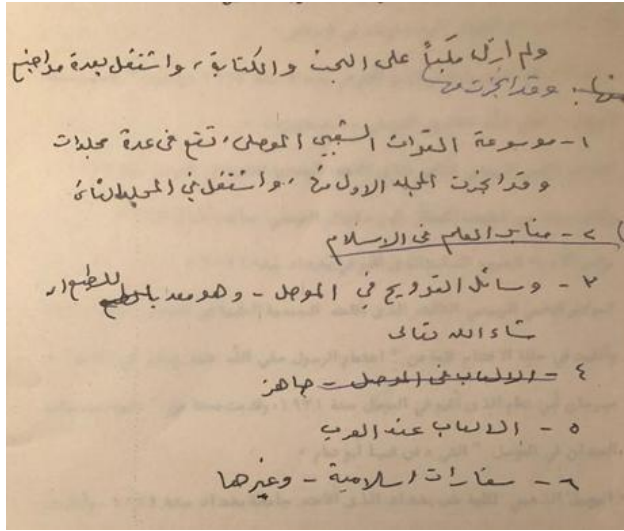 ولم ازل مكباً على البحث والكتابة، واشتغل بعدة مواضيع
منها، وقد انجزت منها
١- موسوعة التراث الشعبي الموصلي، تقع في عدة مجلدات
وقد انجزت المجلد الاول منها، واشتغل في المجلد الثاني
٢- منابر العلم في الاسلام
٣- وسائل الترويح في الموصل - وهو معد للطبع ان
شاء الله تعالى
٤- الالعاب في الموصل - جاهز
٥- الالعاب عند العرب
٦- سفارات اسلامية - وغيرها